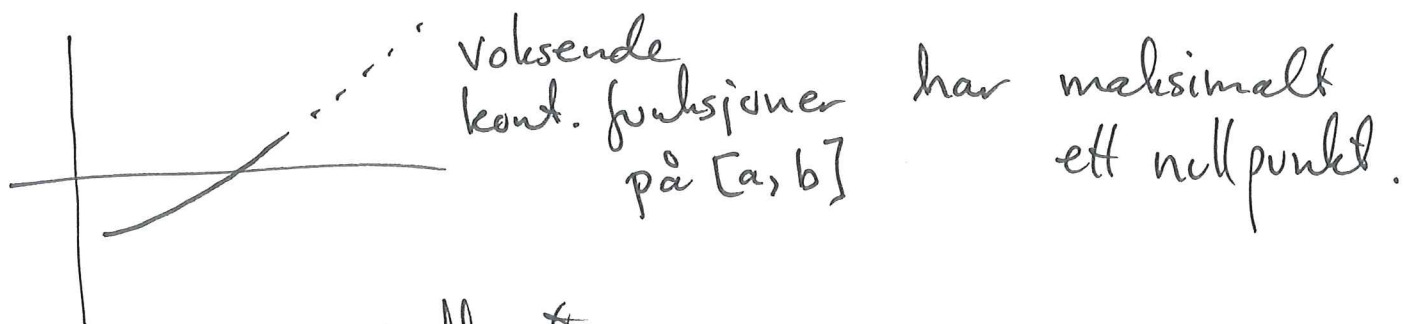 voksende
kont. funksjoner har maksimalt
på [a, b] ett nullpunkt.